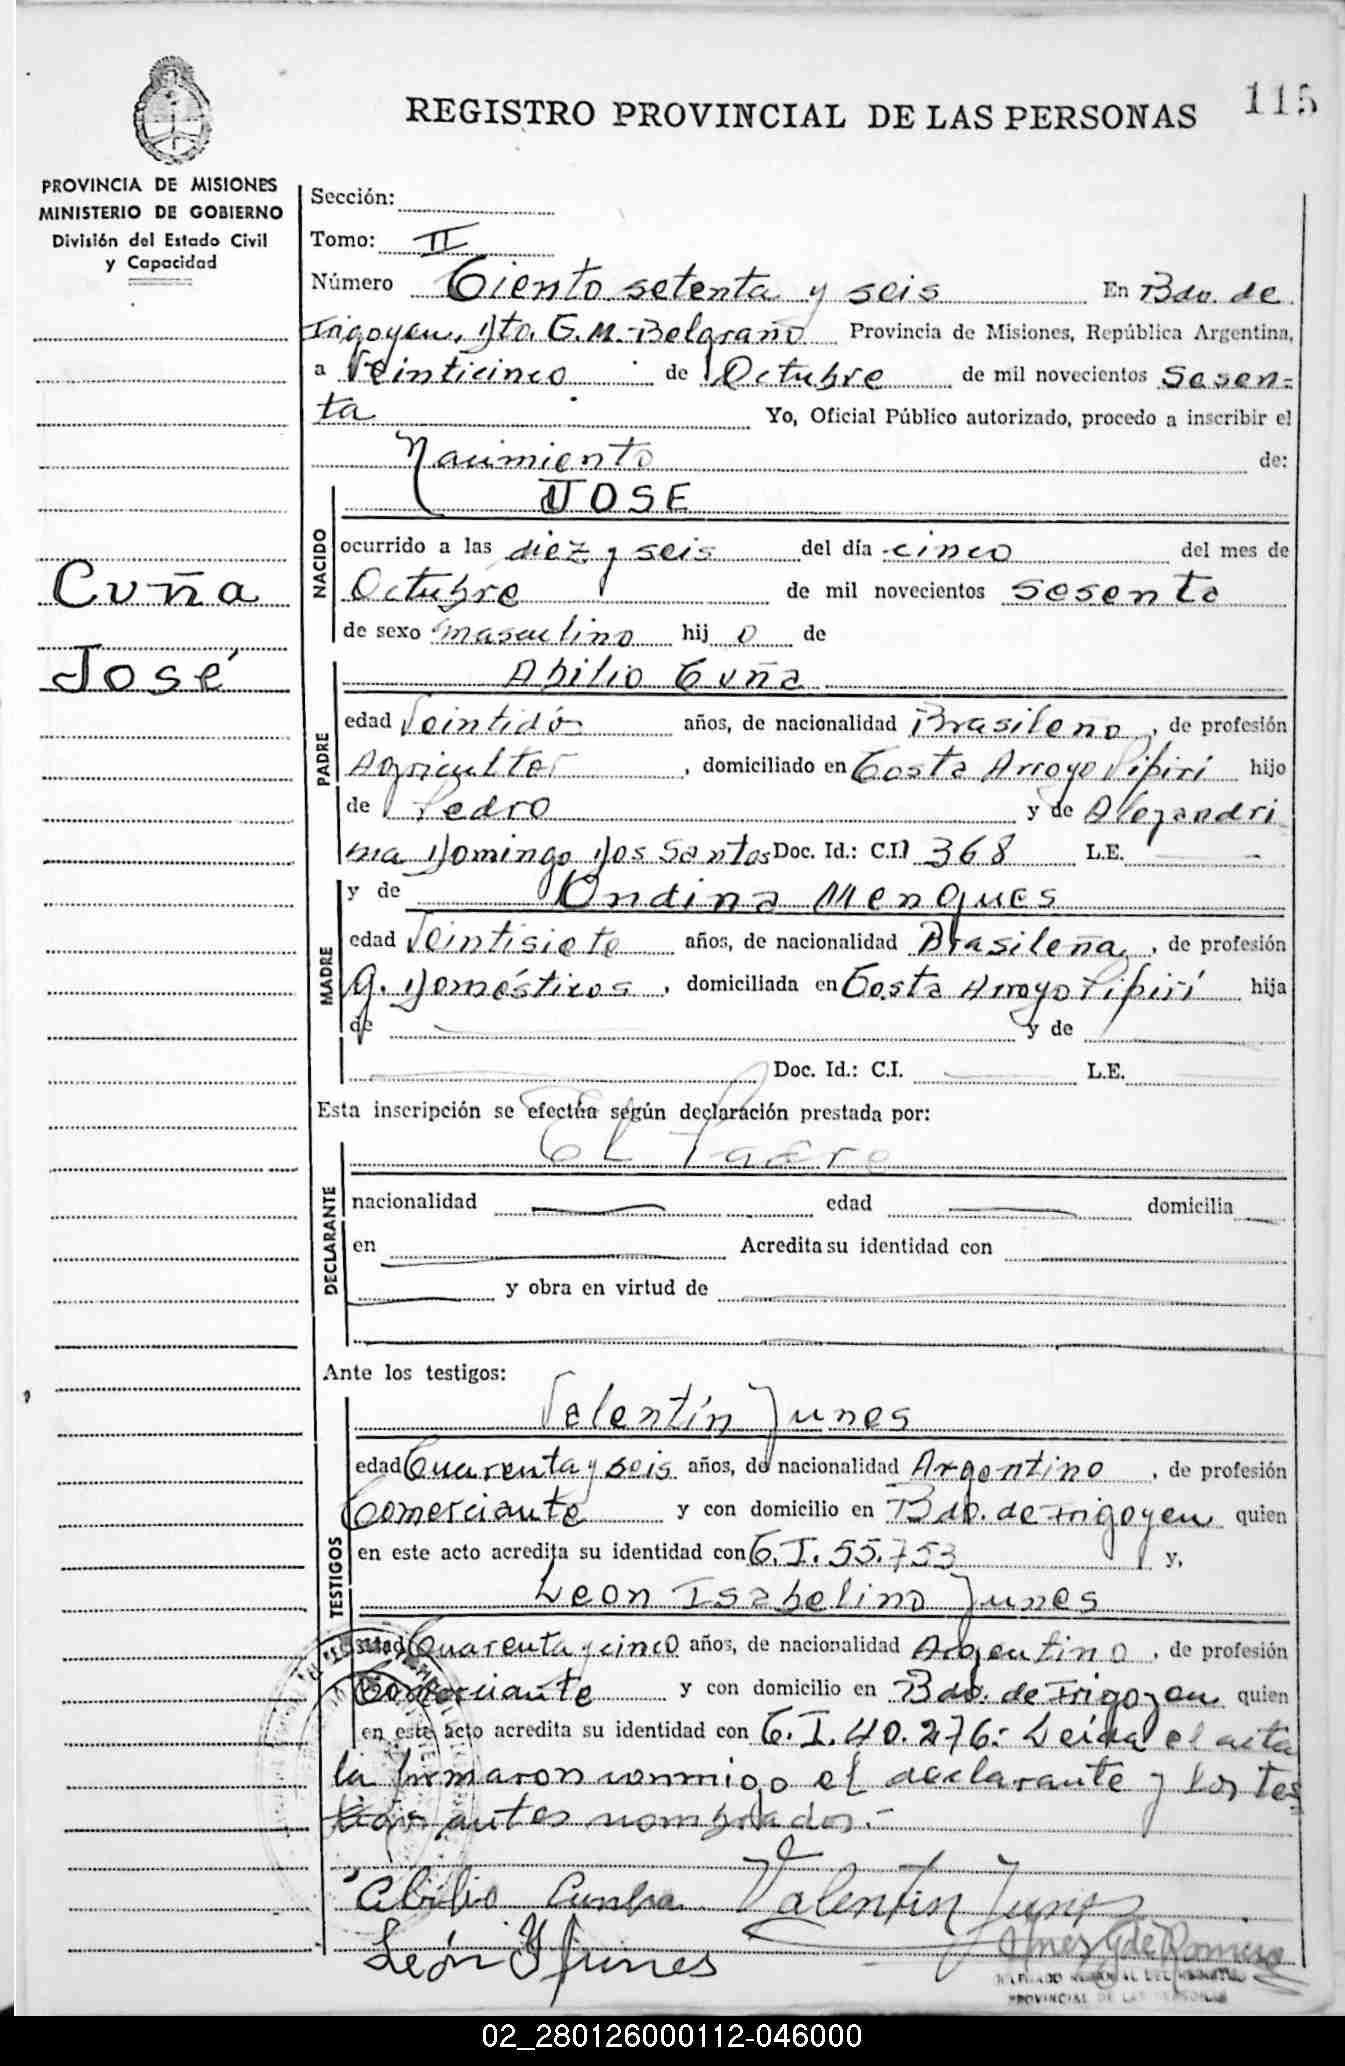 115
REGISTRO PROVINCIAL DE LAS PERSONAS
PROVINCIA DE MISIONES
MINISTERIO DE GOBIERNO
División del Estado Civil
y Capacidad
Sección:
Tomo: II
Número Ciento setenta y seis En Bdo. de
Irigoyen, Dto. G. M. Belgrano Provincia de Misiones, República Argentina,
a Veinticinco de Octubre de mil novecientos Sesen=
ta Yo, Oficial Público autorizado, procedo a inscribir el
Nacimiento de:
JOSE
NACIDO
ocurrido a las diez y seis del día cinco del mes de
Octubre de mil novecientos sesenta
de sexo masculino hij o de
Cuña
José
PADRE
Abilio Cuña
edad Veintidós años, de nacionalidad Brasileño, de profesión
Agricultor, domiciliado en Costa Arroyo Pipirí hijo
de Pedro y de Alejandri
na Domingo Dos Santos Doc. Id.: C.I. 368 L.E.
MADRE
y de Ondina Menques
edad Veintisiete años, de nacionalidad Brasileña, de profesión
Q. Domésticos, domiciliada en Costa Arroyo Pipirí hija
de y de
Doc. Id.: C.I. L.E.
Esta inscripción se efectúa según declaración prestada por:
El Padre
DECLARANTE
nacionalidad edad domicilia
en Acredita su identidad con
y obra en virtud de
Ante los testigos:
TESTIGOS
Valentín Junes
edad Cuarenta y seis años, de nacionalidad Argentino, de profesión
Comerciante y con domicilio en Bdo. de Irigoyen quien
en este acto acredita su identidad con C.I. 55.753 y,
Leon Isabelino Junes
edad Cuarenta y cinco años, de nacionalidad Argentino, de profesión
Comerciante y con domicilio en Bdo. de Irigoyen quien
en este acto acredita su identidad con C.I. 40.276.- Leída el acta
la firmaron conmigo el declarante y los tes
tigos antes nombrados.-
Abilio Cunha Valentín Junes
León I Junes
PROVINCIAL DE LAS PERSONAS
02_280126000112-046000